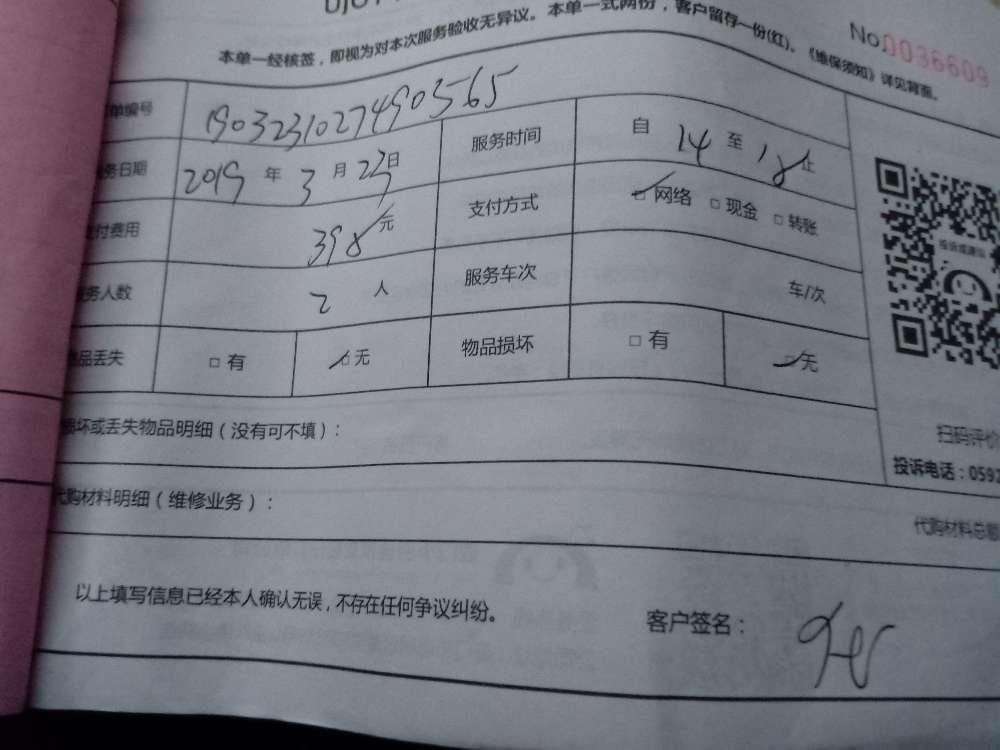 本单一经核签，即视为对本次服务验收无异议。本单一式两份，客户留存一份(红)。《维保须知》详见背面。
No.0036609
单编号 19032310274903565
务日期 2019 年 3 月 23 日 服务时间 自 14 至 18 止
付费用 398 元 支付方式 ☑ 网络 □ 现金 □ 转账
务人数 2 人 服务车次 车/次
品丢失 □ 有 ☑ 无 物品损坏 □ 有 ☑ 无
投诉或建议
扫码评价
投诉电话：0592
损坏或丢失物品明细（没有可不填）：
代购材料明细（维修业务）：
代购材料总额
以上填写信息已经本人确认无误，不存在任何争议纠纷。 客户签名：